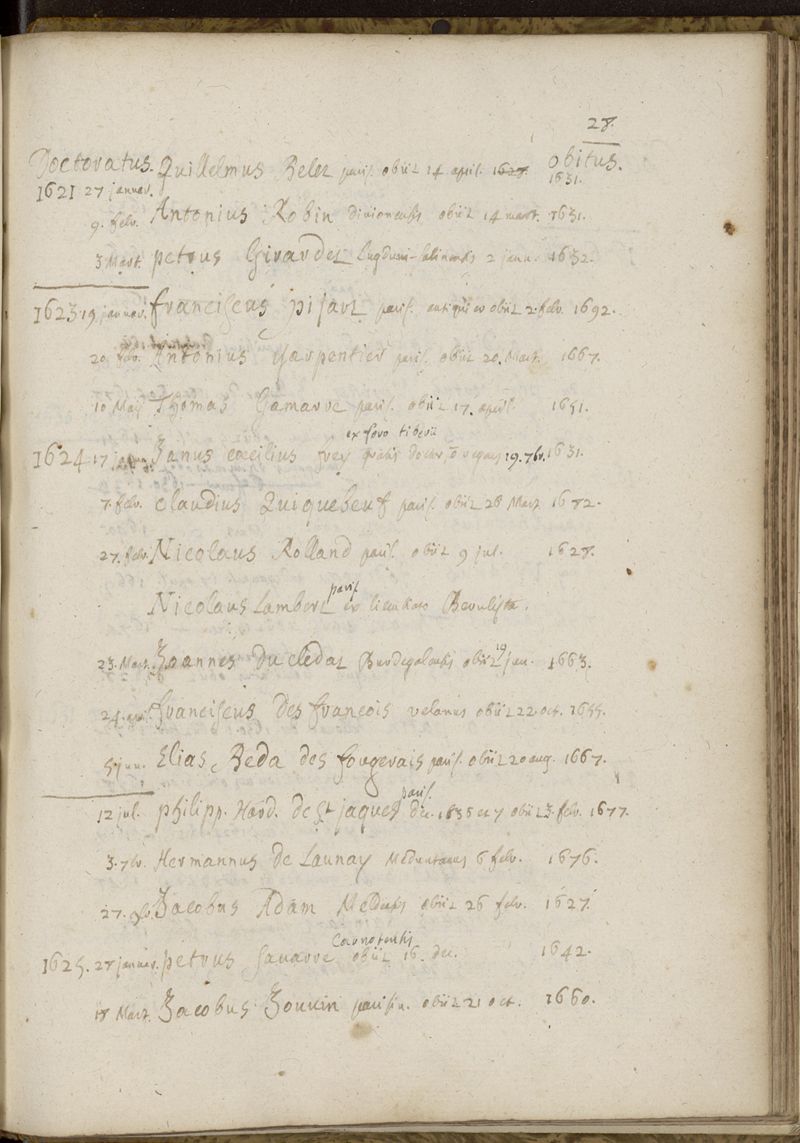 28.
Doctoratus. Quillelmus Belet paris. obiit 14 april. 1627. obitus.
1621 27 januar. 1631.
9. febr. Antonius Robin divionensis obiit 14 mart. 1631.
3 Mart. petrus Girardet Lugduni- 2 janu. 1632.
1623 19 januar. franciscus pijart paris. antiquior obiit 2. febr. 1692.
20 febr. Antonius Charpentier paris. obiit 20. Mart. 1667.
10 Maij Thomas Gamarre paris. obiit 17. april. 1651.
ex foro tiberii
1624 17 Janus cæcilius frey doctor 19. 7br. 1631.
7. febr. claudius Quiquebeuf paris. obiit 28 Mart 1672.
27. febr. Nicolaus Rolland paris. obiit 9 jul. 1628.
paris.
Nicolaus Lambert ex licentiato
23. Mart. Joannes Du cledat Burdegalensis obiit 19 jan. 1663.
24. franciscus des francois obiit 22 oct. 1655.
5 jun. Elias Beda des fougerais paris. obiit 20 aug. 1667.
paris.
12 jul. philipp. Hard. de St jaques dec. 1636 et 7 obiit 3. febr. 1677.
3. 7br. Hermannus De Launay Meduntanus 6 febr. 1676.
27. Jacobus Adam Meldensis obiit 26 febr. 1627.
Carnotensis
1625. 27 januar. petrus Gavarre obiit 16. dec. 1642.
18 Mart. Jacobus Jouvin parisin. obiit 21 oct. 1660.